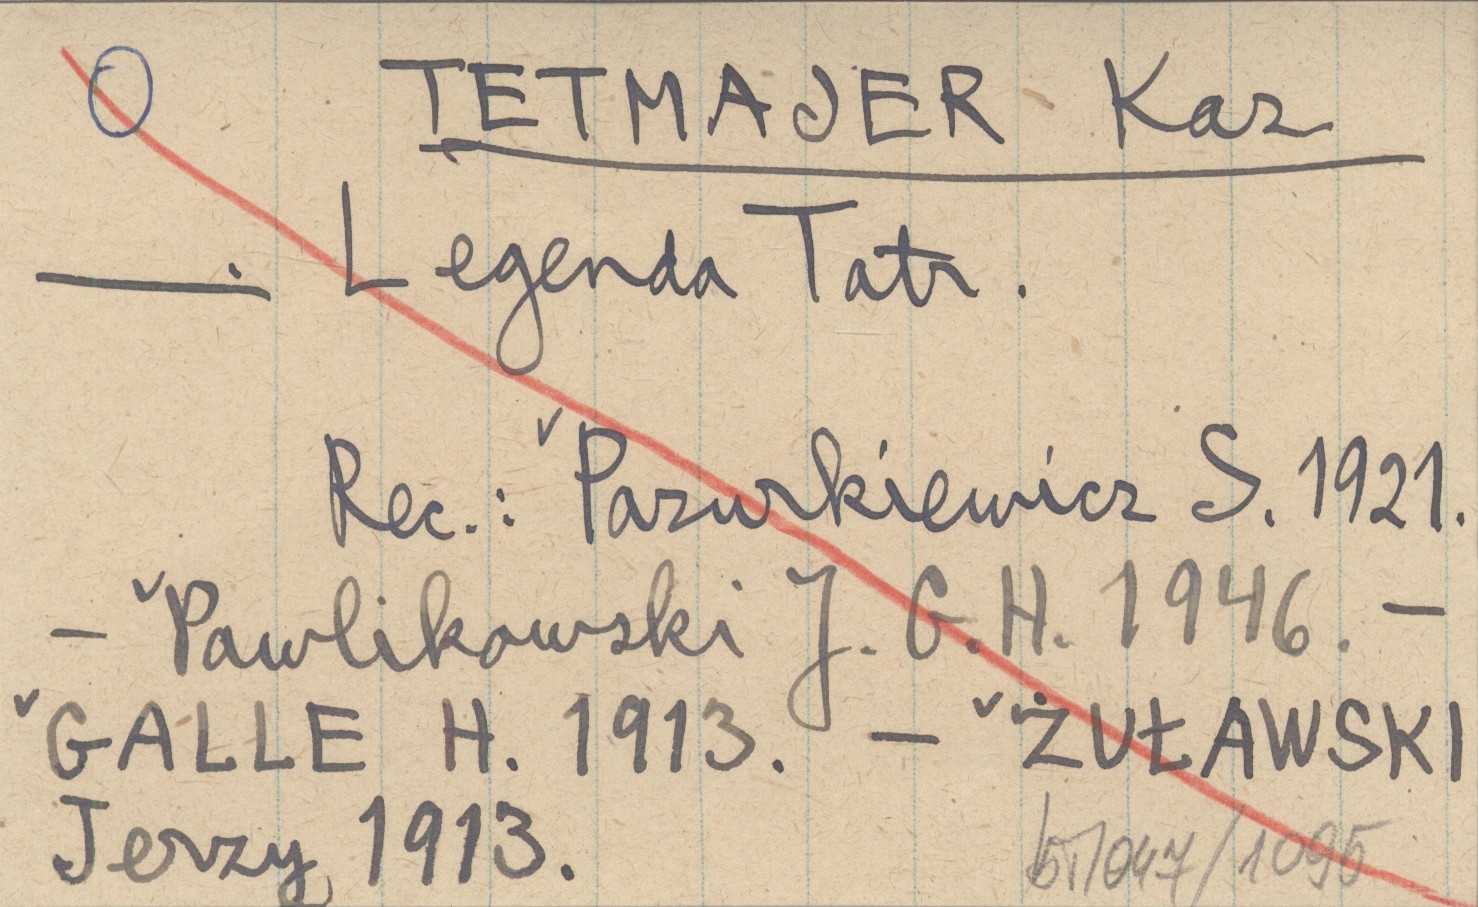 TETMAJER Kaz
—. Legenda Tatr.
Rec.: ˅Pazurkiewicz S. 1921.
– ˅Pawlikowski J. G. H. 1946. –
˅GALLE H. 1913. – ˅ŻUŁAWSKI
Jerzy 1913.
/1095